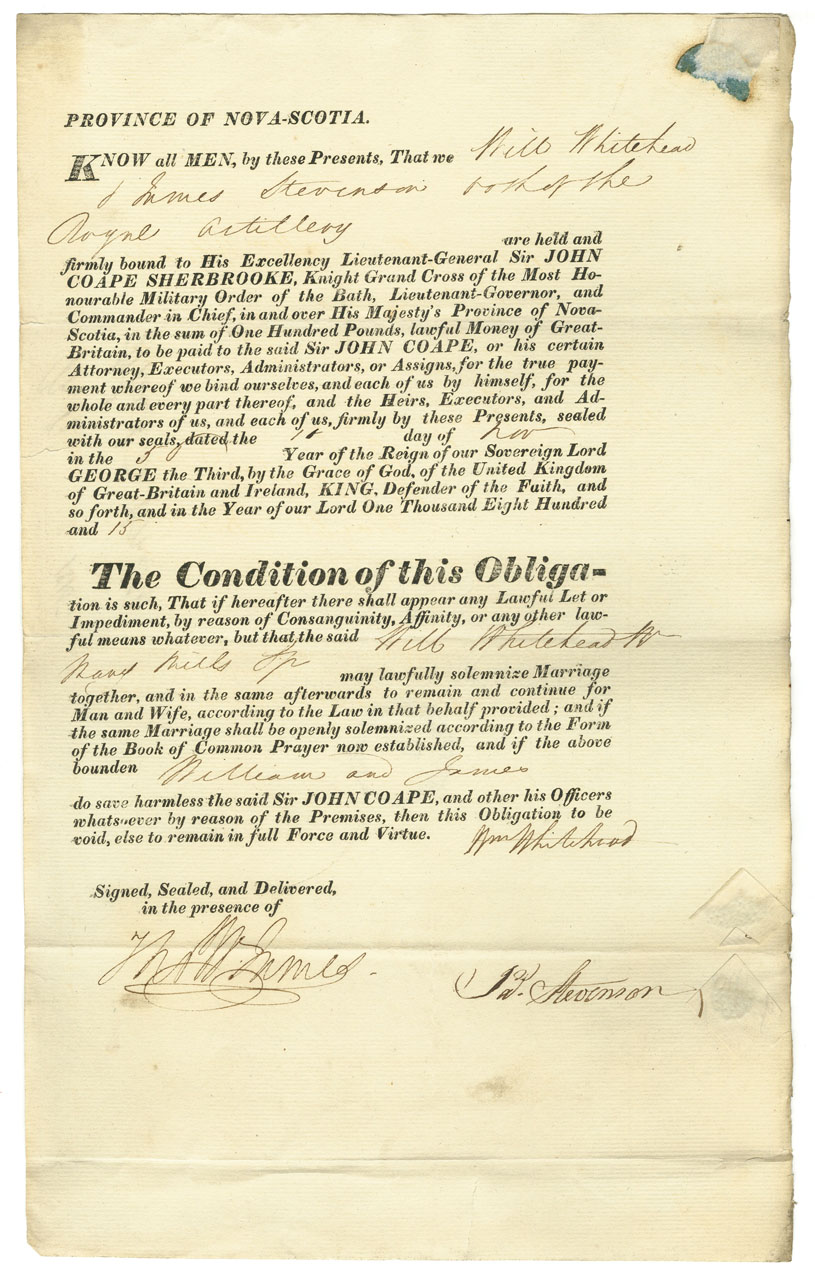 PROVINCE OF NOVA-SCOTIA.
KNOW all MEN, by these Presents, That we Will Whitehead
& James Stevenson both of the
Royal Artillery are held and
firmly bound to His Excellency Lieutenant-General Sir JOHN
COAPE SHERBROOKE, Knight Grand Cross of the Most Ho-
nourable Military Order of the Bath, Lieutenant-Governor, and
Commander in Chief, in and over His Majesty's Province of Nova-
Scotia, in the sum of One Hundred Pounds, lawful Money of Great-
Britain, to be paid to the said Sir JOHN COAPE, or his certain
Attorney, Executors, Administrators, or Assigns, for the true pay-
ment whereof we bind ourselves, and each of us by himself, for the
whole and every part thereof, and the Heirs, Executors, and Ad-
ministrators of us, and each of us, firmly by these Presents, sealed
with our seals, dated the day of Nov
in the Year of the Reign of our Sovereign Lord
GEORGE the Third, by the Grace of God, of the United Kingdom
of Great-Britain and Ireland, KING, Defender of the Faith, and
so forth, and in the Year of our Lord One Thousand Eight Hundred
and 15
The Condition of this Obliga-
tion is such, That if hereafter there shall appear any Lawful Let or
Impediment, by reason of Consanguinity, Affinity, or any other law-
ful means whatever, but that the said Will Whitehead
Mary Mills Sp may lawfully solemnize Marriage
together, and in the same afterwards to remain and continue for
Man and Wife, according to the Law in that behalf provided; and if
the same Marriage shall be openly solemnized according to the Form
of the Book of Common Prayer now established, and if the above
bounden William and James
do save harmless the said Sir JOHN COAPE, and other his Officers
whatsoever by reason of the Premises, then this Obligation to be
void, else to remain in full Force and Virtue. Wm Whitehead
Signed, Sealed, and Delivered,
in the presence of
James
Stevenson